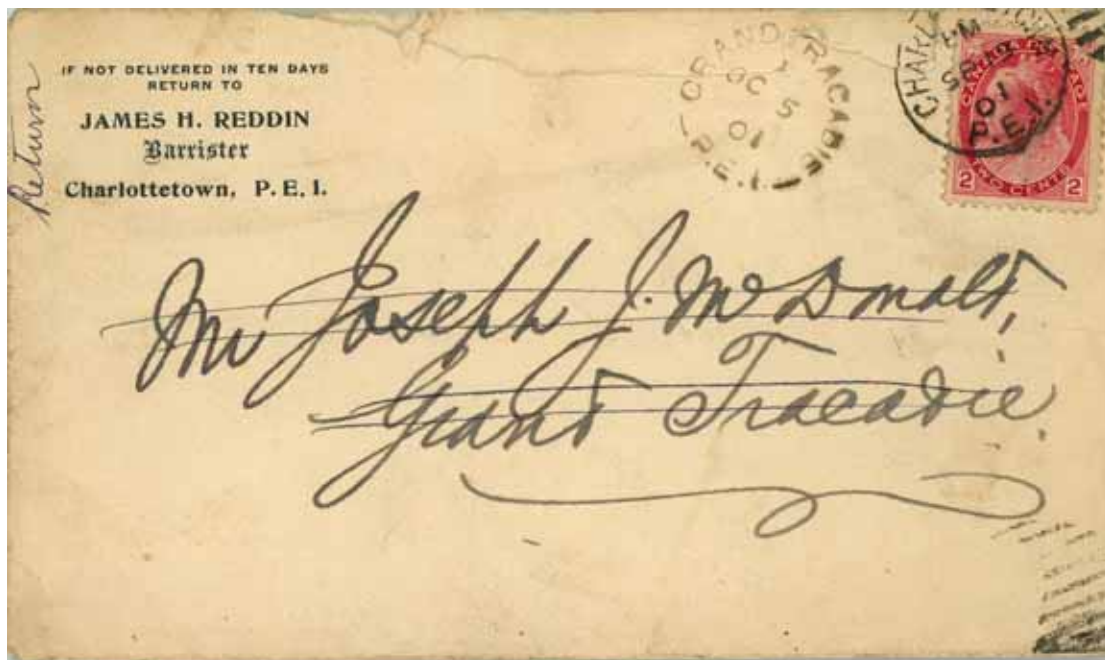 Return
IF NOT DELIVERED IN TEN DAYS
RETURN TO
JAMES H. REDDIN
Barrister
Charlottetown, P. E. I.
GRAND TRACADIE
OC 5
01
P.E.I.
PM
01
P.E.I.
2 TWO CENTS 2
Mr Joseph J. McDonald,
Grand Tracadie